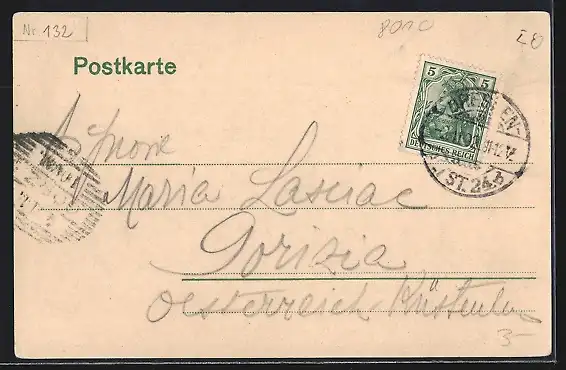 Nr. 132
8010
Postkarte
5 5
DEUTSCHES REICH
DRESDEN-
ST. 24.b
Maria Lasciac
Gorizia
Oesterreich Küstenlan
3-